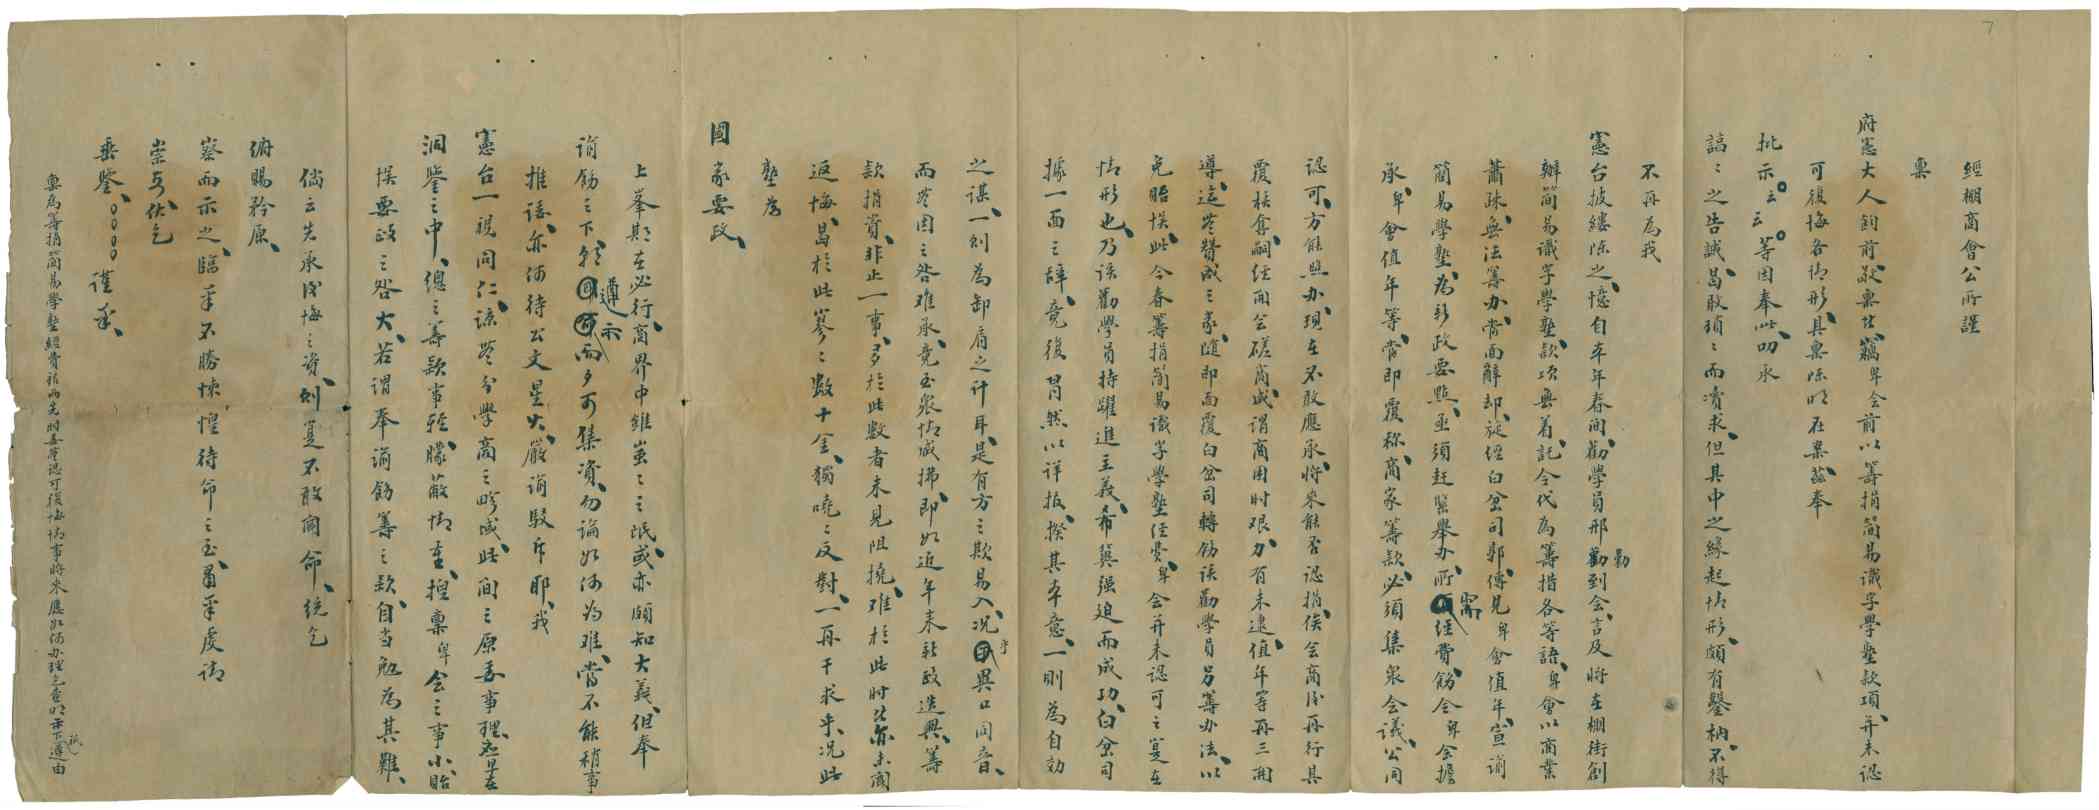 經棚商會公所謹
稟
府憲大人鈞前敬稟者竊卑會前以籌捐簡易識字學塾款項并未認
可復悔各情形具稟陳明在案茲奉
批示云云等因奉此叨承
諄諄之告誡曷敢瑣瑣而瀆求但其中之緣起情形頗有鑿枘不得
不再為我
憲台披縷陳之憶自本年春間勸學員邢勸到會言及將在棚街創
勒
辦簡易識字學塾款項無着託令代為籌措各等語卑會以商業
蕭疎無法籌办當面辭却旋經白岔司郭傳見卑會值年宣諭
簡易學塾為新政要點亟須赶緊舉办所需經費飭令卑會擔
承卑會值年等當即覆称商家籌款必須集衆會議公同
認可方能照办現在不敢應承將來能否認捐俟會商後再行具
覆核奪嗣經開会磋商咸謂商困时艰力有未逮值年等再三開
導迄無贊成之家隨即面覆白岔司轉飭该勸學員另籌办法以
免貽悞此今春籌捐简易識字學塾经费卑会并未認可之寔在
情形也乃该勸學員持躍進主義希冀强迫而成功白岔司
據一面之辞竟復貿然以详报揆其本意一則為自効
之謀一則為卸肩之计耳是有方之欺易入况異口同音
而岑因之咎难承竟至衆情咸拂即如近年来新政迭興籌
款捐資非止一事多於此數者未見阻撓难於此时者亦未聞
返悔曷於此寥寥數十金獨嘵嘵反對一再干求乎况此
塾为
國家要政
上峯期在必行商界中雖蚩蚩之氓或亦頗知大義但奉
諭飭之下自可遵示而多可集資勿論如何为难當不能稍事
推诿亦何待公文星火嚴谕駁斥耶我
憲台一視同仁諒無分學商之畛域此间之原委事理恐早在
洞鑒之中總之籌款事輕矇蔽情重揑稟卑会之事小貽
悞要政之咎大若谓奉諭飭籌之款自当勉为其難
倘云先承後悔之資則寔不敢聞命統乞
俯賜矜原
察而示之臨稟不勝悚惶待命之至肅稟虔请
崇安伏乞
垂鑒○○○○謹稟
稟為籌捐簡易學塾經費接而先时并無認可復悔情事將來應如何办理之處明示下遵由